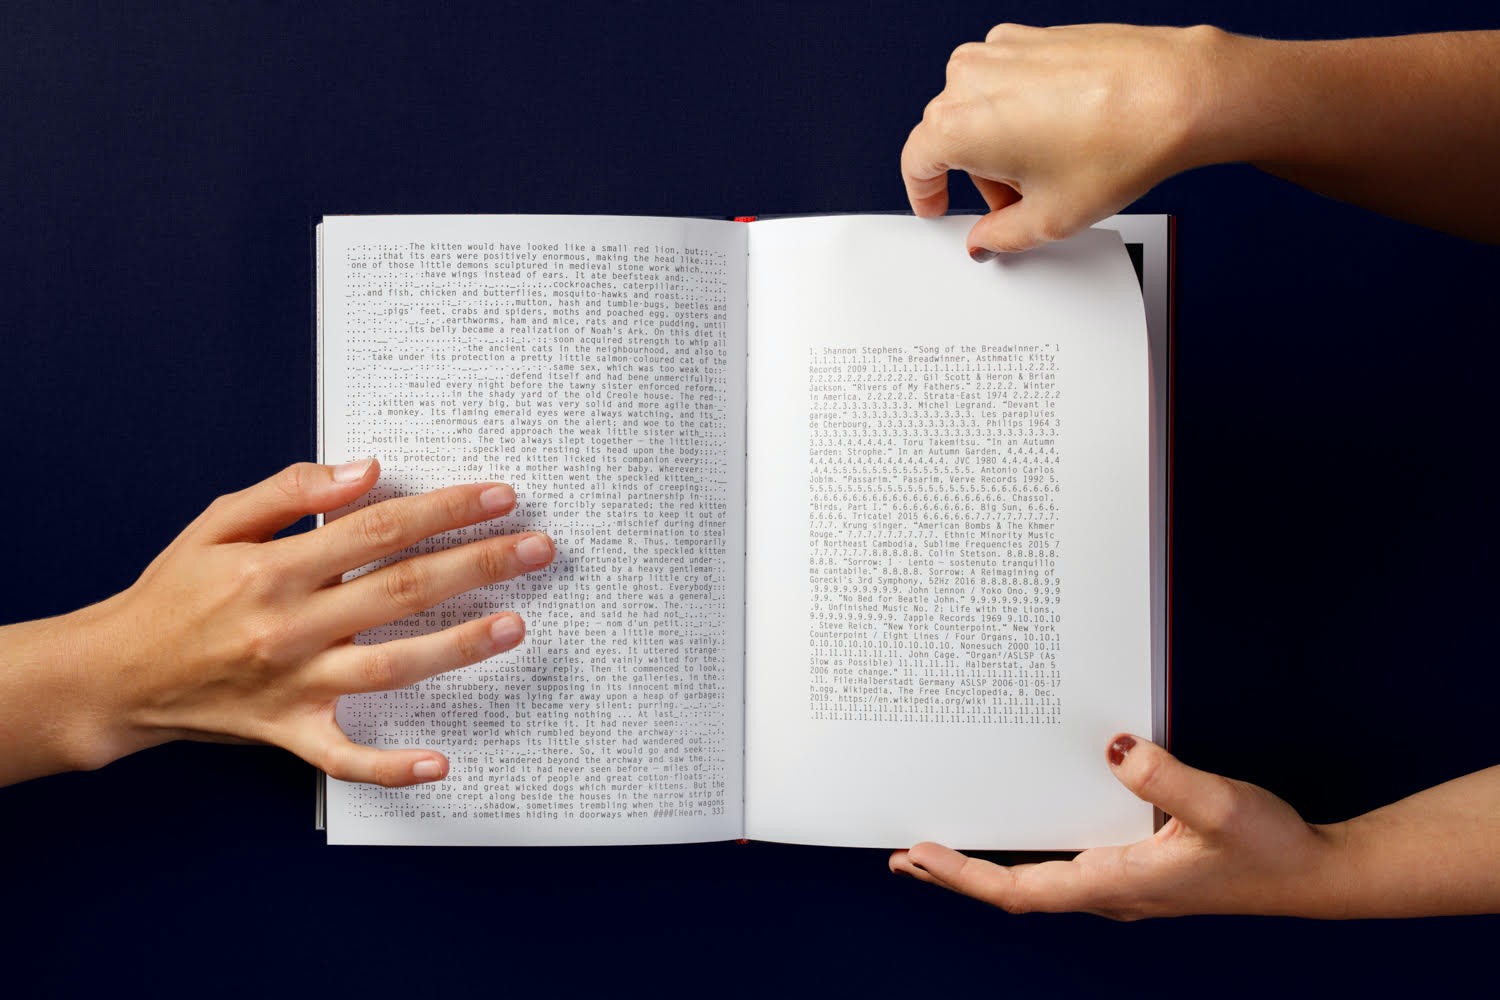 .The kitten would have looked like a small red lion, but
that its ears were positively enormous, making the head like
one of those little demons sculptured in medieval stone work which
have wings instead of ears. It ate beefsteak and
cockroaches, caterpillar
and fish, chicken and butterflies, mosquito-hawks and roast
mutton, hash and tumble-bugs, beetles and
pigs' feet, crabs and spiders, moths and poached egg, oysters and
earthworms, ham and mice, rats and rice pudding, until
its belly became a realization of Noah's Ark. On this diet it
soon acquired strength to whip all
the ancient cats in the neighbourhood, and also to
take under its protection a pretty little salmon-coloured cat of the
same sex, which was too weak to
defend itself and had bene unmercifully
mauled every night before the tawny sister enforced reform
in the shady yard of the old Creole house. The red
kitten was not very big, but was very solid and more agile than
a monkey. Its flaming emerald eyes were always watching, and its
enormous ears always on the alert; and woe to the cat
who dared approach the weak little sister with
hostile intentions. The two always slept together — the little
speckled one resting its head upon the body
of its protector; and the red kitten licked its companion every
day like a mother washing her baby. Wherever
the red kitten went the speckled kitten
they hunted all kinds of creeping
things formed a criminal partnership in
were forcibly separated; the red kitten
closet under the stairs to keep it out of
mischief during dinner
as it had an insolent determination to steal
stuffed ate of Madame R. Thus, temporarily
of and friend, the speckled kitten
unfortunately wandered under
agitated by a heavy gentleman
"Bee"; and with a sharp little cry of
agony it gave up its gentle ghost. Everybody
stopped eating; and there was a general
outburst of indignation and sorrow. The
got very the face, and said he had not
to do d'une pipe; — nom d'un petit
might have been a little more
hour later the red kitten was vainly
— all ears and eyes. It uttered strange
little cries, and vainly waited for the
customary reply. Then it commenced to look
upstairs, downstairs, on the galleries, in the
the shrubbery, never supposing in its innocent mind that
a little speckled body was lying far away upon a heap of garbage
and ashes. Then it became very silent; purring
when offered food, but eating nothing ... At last
a sudden thought seemed to strike it. It had never seen
the great world which rumbled beyond the archway
of the old courtyard; perhaps its little sister had wandered out
there. So, it would go and seek
time it wandered beyond the archway and saw the
big world it had never seen before — miles of
and myriads of people and great cotton-floats
by, and great wicked dogs which murder kittens. But the
little red one crept along beside the houses in the narrow strip of
shadow, sometimes trembling when the big wagons
rolled past, and sometimes hiding in doorways when @@@@(Hearn, 33)
1. Shannon Stephens. “Song of the Breadwinner.” 1
.1.1.1.1.1.1.1. The Breadwinner, Asthmatic Kitty
Records 2009 1.1.1.1.1.1.1.1.1.1.1.1.1.1.1.2.2.2.
2.2.2.2.2.2.2.2.2.2.2. Gil Scott & Heron & Brian
Jackson. “Rivers of My Fathers.” 2.2.2.2. Winter
in America, 2.2.2.2.2. Strata-East 1974 2.2.2.2.2
.2.2.2.3.3.3.3.3.3. Michel Legrand. “Devant le
garage.” 3.3.3.3.3.3.3.3.3.3.3.3. Les parapluies
de Cherbourg, 3.3.3.3.3.3.3.3. Philips 1964 3
.3.3.3.3.3.3.3.3.3.3.3.3.3.3.3.3.3.3.3.3.3.3.3.3.
3.3.3.4.4.4.4.4. Toru Takemitsu. “In an Autumn
Garden: Strophe.” In an Autumn Garden, 4.4.4.4.4.
4.4.4.4.4.4.4.4.4.4.4.4.4. JVC 1980 4.4.4.4.4.4.4
.4.4.5.5.5.5.5.5.5.5.5.5.5.5.5. Antonio Carlos
Jobim. “Passarim.” Pasarim, Verve Records 1992 5.
5.5.5.5.5.5.5.5.5.5.5.5.5.5.5.5.6.6.6.6.6.6.6.6.6
.6.6.6.6.6.6.6.6.6.6.6.6.6.6.6.6.6.6.6. Chassol.
“Birds, Part I.” 6.6.6.6.6.6.6.6. Big Sun, 6.6.6.
6.6.6.6. Tricatel 2015 6.6.6.6.6.7.7.7.7.7.7.7.7.
7.7.7. Krung singer. “American Bombs & The Khmer
Rouge.” 7.7.7.7.7.7.7.7.7. Ethnic Minority Music
of Northeast Cambodia, Sublime Frequencies 2015 7
.7.7.7.7.7.8.8.8.8.8. Colin Stetson. 8.8.8.8.8.
8.8.8. “Sorrow: I - Lento — sostenuto tranquillo
ma cantabile.” 8.8.8.8. Sorrow: A Reimagining of
Gorecki's 3rd Symphony, 52Hz 2016 8.8.8.8.8.8.9.9
.9.9.9.9.9.9.9.9.9. John Lennon / Yoko Ono. 9.9.9
.9.9. “No Bed for Beatle John.” 9.9.9.9.9.9.9.9.9
.9. Unfinished Music No. 2: Life with the Lions,
9.9.9.9.9.9.9.9. Zapple Records 1969 9.10.10.10
. Steve Reich. “New York Counterpoint.” New York
Counterpoint / Eight Lines / Four Organs, 10.10.1
0.10.10.10.10.10.10.10.10.10. Nonesuch 2000 10.11
.11.11.11.11.11.11. John Cage. “Organ²/ASLSP (As
Slow as Possible) 11.11.11.11. Halberstat, Jan 5
2006 note change.” 11. 11.11.11.11.11.11.11.11.11
.11. File:Halberstadt Germany ASLSP 2006-01-05-17
h.ogg, Wikipedia, The Free Encyclopedia, 8. Dec.
2019. https://en.wikipedia.org/wiki 11.11.11.11.1
1.11.11.11.11.11.11.11.11.11.11.11.11.11.11.11.11
.11.11.11.11.11.11.11.11.11.11.11.11.11.11.11.11.